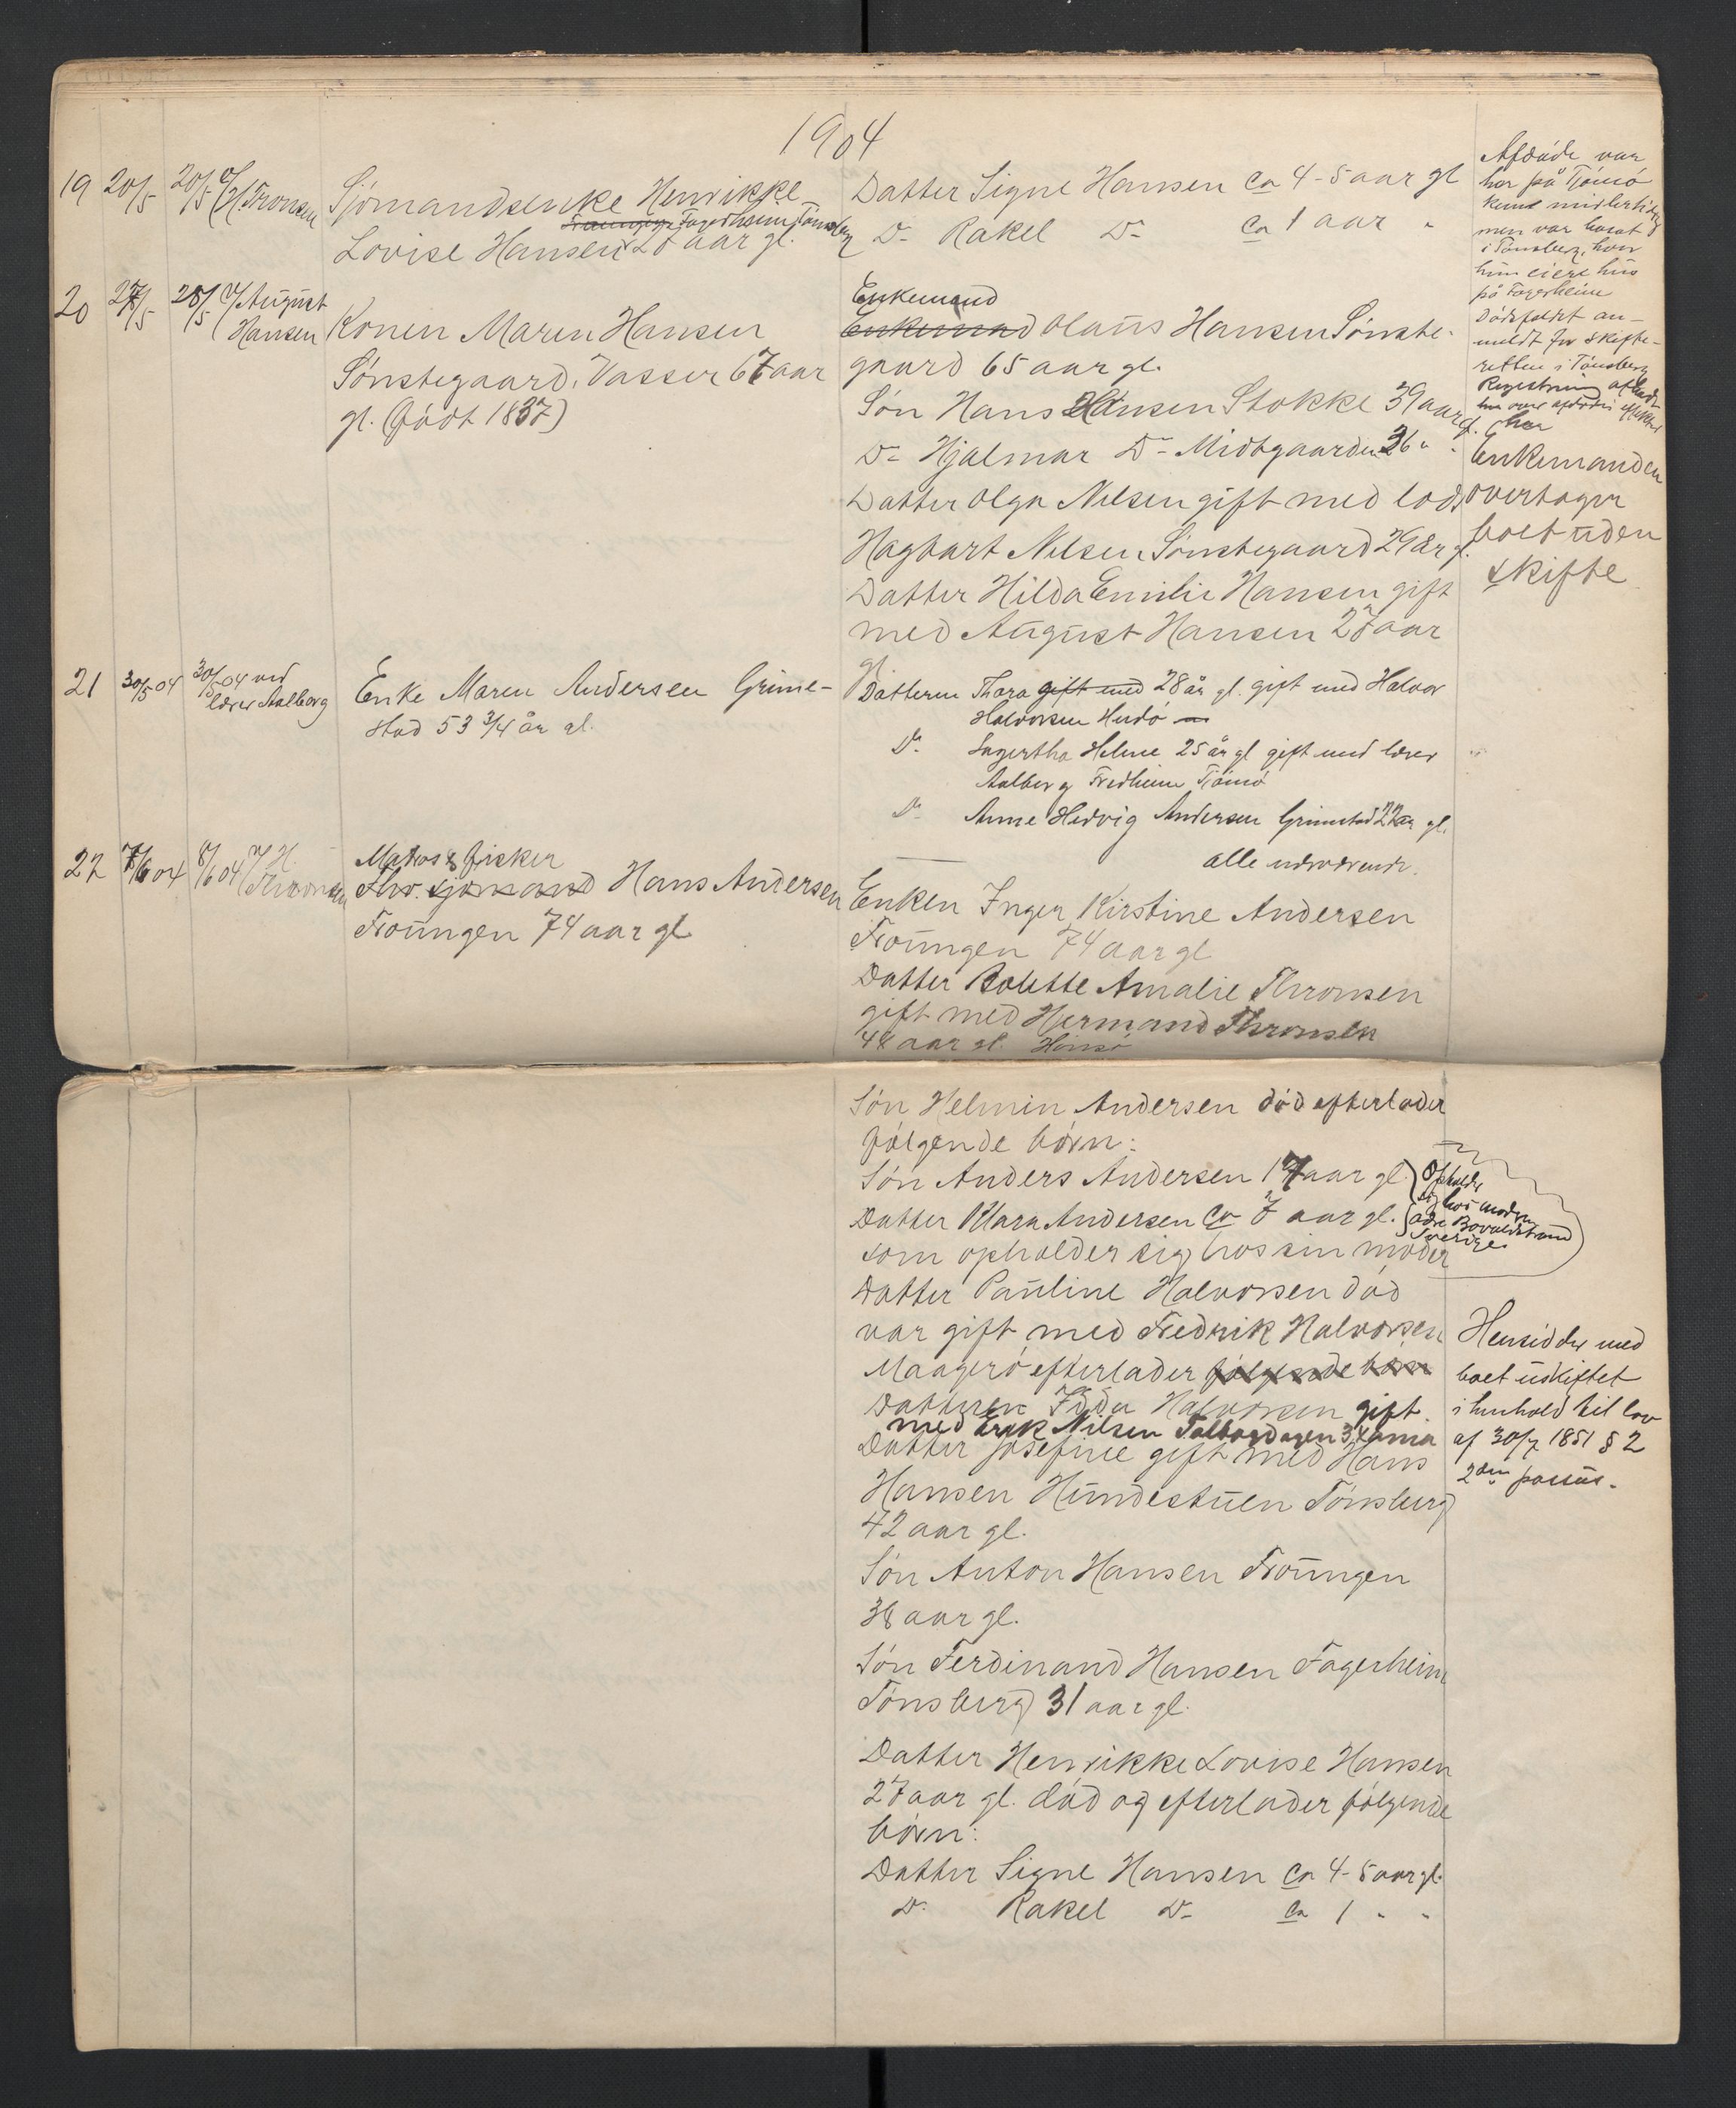 1904
19 20/5 20/5 v/ H. Tronsen
Sjømandsenke Henrikke
Fagerheim Tønsberg
Lovise Hansen 28 aar gl.
Datter Signe Hansen ca 4-5 aar gl
D- Rakel D- ca 1 aar "
Afdøde var
her på Tjømø
kun midlertidig
men var bosat
i Tønsberg, hvor
hun eier hus
på Fagerheim
Dødsfaldet an-
meldt for skifte-
retten i Tønsberg
Registrering af
20 27/5 28/5 v/ August
Hansen
Konen Maren Hansen
Sønstegaard, Vasser 67 aar
gl. (født 1837)
Enkemand
Enkemand Olaus Hansen Sønste-
gaard 65 aar gl.
Søn Hans Hansen Stokke 39 aar gl.
D- Hjalmar D- Midtgaarden 36 " "
Datter Olga Nilsen gift med lods
Hagbart Nilsen Sønstegaard 29 år g.
Datter Hilda Emilie Hansen gift
med August Hansen 27 aar
gl.
Enkemanden
overtager
boet uden
skifte
21 30/5 04 30/5 04 ved
lærer Aalberg
Enke Maren Andersen Grime-
stad 53 3/4 år gl.
Datteren Thora gift med 28 år gl. gift med Halvor
Halvorsen Hvidø
D- Ingertha Helene 25 år gl gift med lærer
Aalberg Fredheim Tjømø
D- Anne Hedvig Andersen Grimestad 22 år gl.
alle nærværende.
22 7/6 04 8/6 04 v/ H.
Thronsen
Matros & fisker
Fhv. sjømand Hans Andersen
Froungen 74 aar gl
Enken Inger Kirstine Andersen
Froungen 74 aar gl
Datter Bolette Amalie Thronsen
gift med Hermand Thronsen
48 aar gl. Hønsø
Søn Helmin Andersen død efterlader
følgende børn:
Søn Anders Andersen 17 aar gl.
Datter Klara Andersen ca 7 aar gl.
Opholder
sig hos moderen
Sverige
som opholder sig hos sin moder
Datter Pauline Halvorsen død
var gift med Fredrik Halvorsen
Maagerø efterlader følgende børn
Datteren Hilda Halvorsen gift
med Erik Nilsen
Datter Josefine gift med Hans
Hansen Hundestuen Tønsberg
42 aar gl.
Søn Anton Hansen Froungen
38 aar gl.
Søn Ferdinand Hansen Fagerheim
Tønsberg 31 aar gl.
Datter Henrikke Lovise Hansen
27 aar gl. død og efterlader følgende
børn:
Datter Signe Hansen ca 4-5 aar gl.
D- Rakel D- ca 1 " "
Hensidder med
boet uskiftet
i henhold til lov
af 30/7 1851 § 2
2den passus.